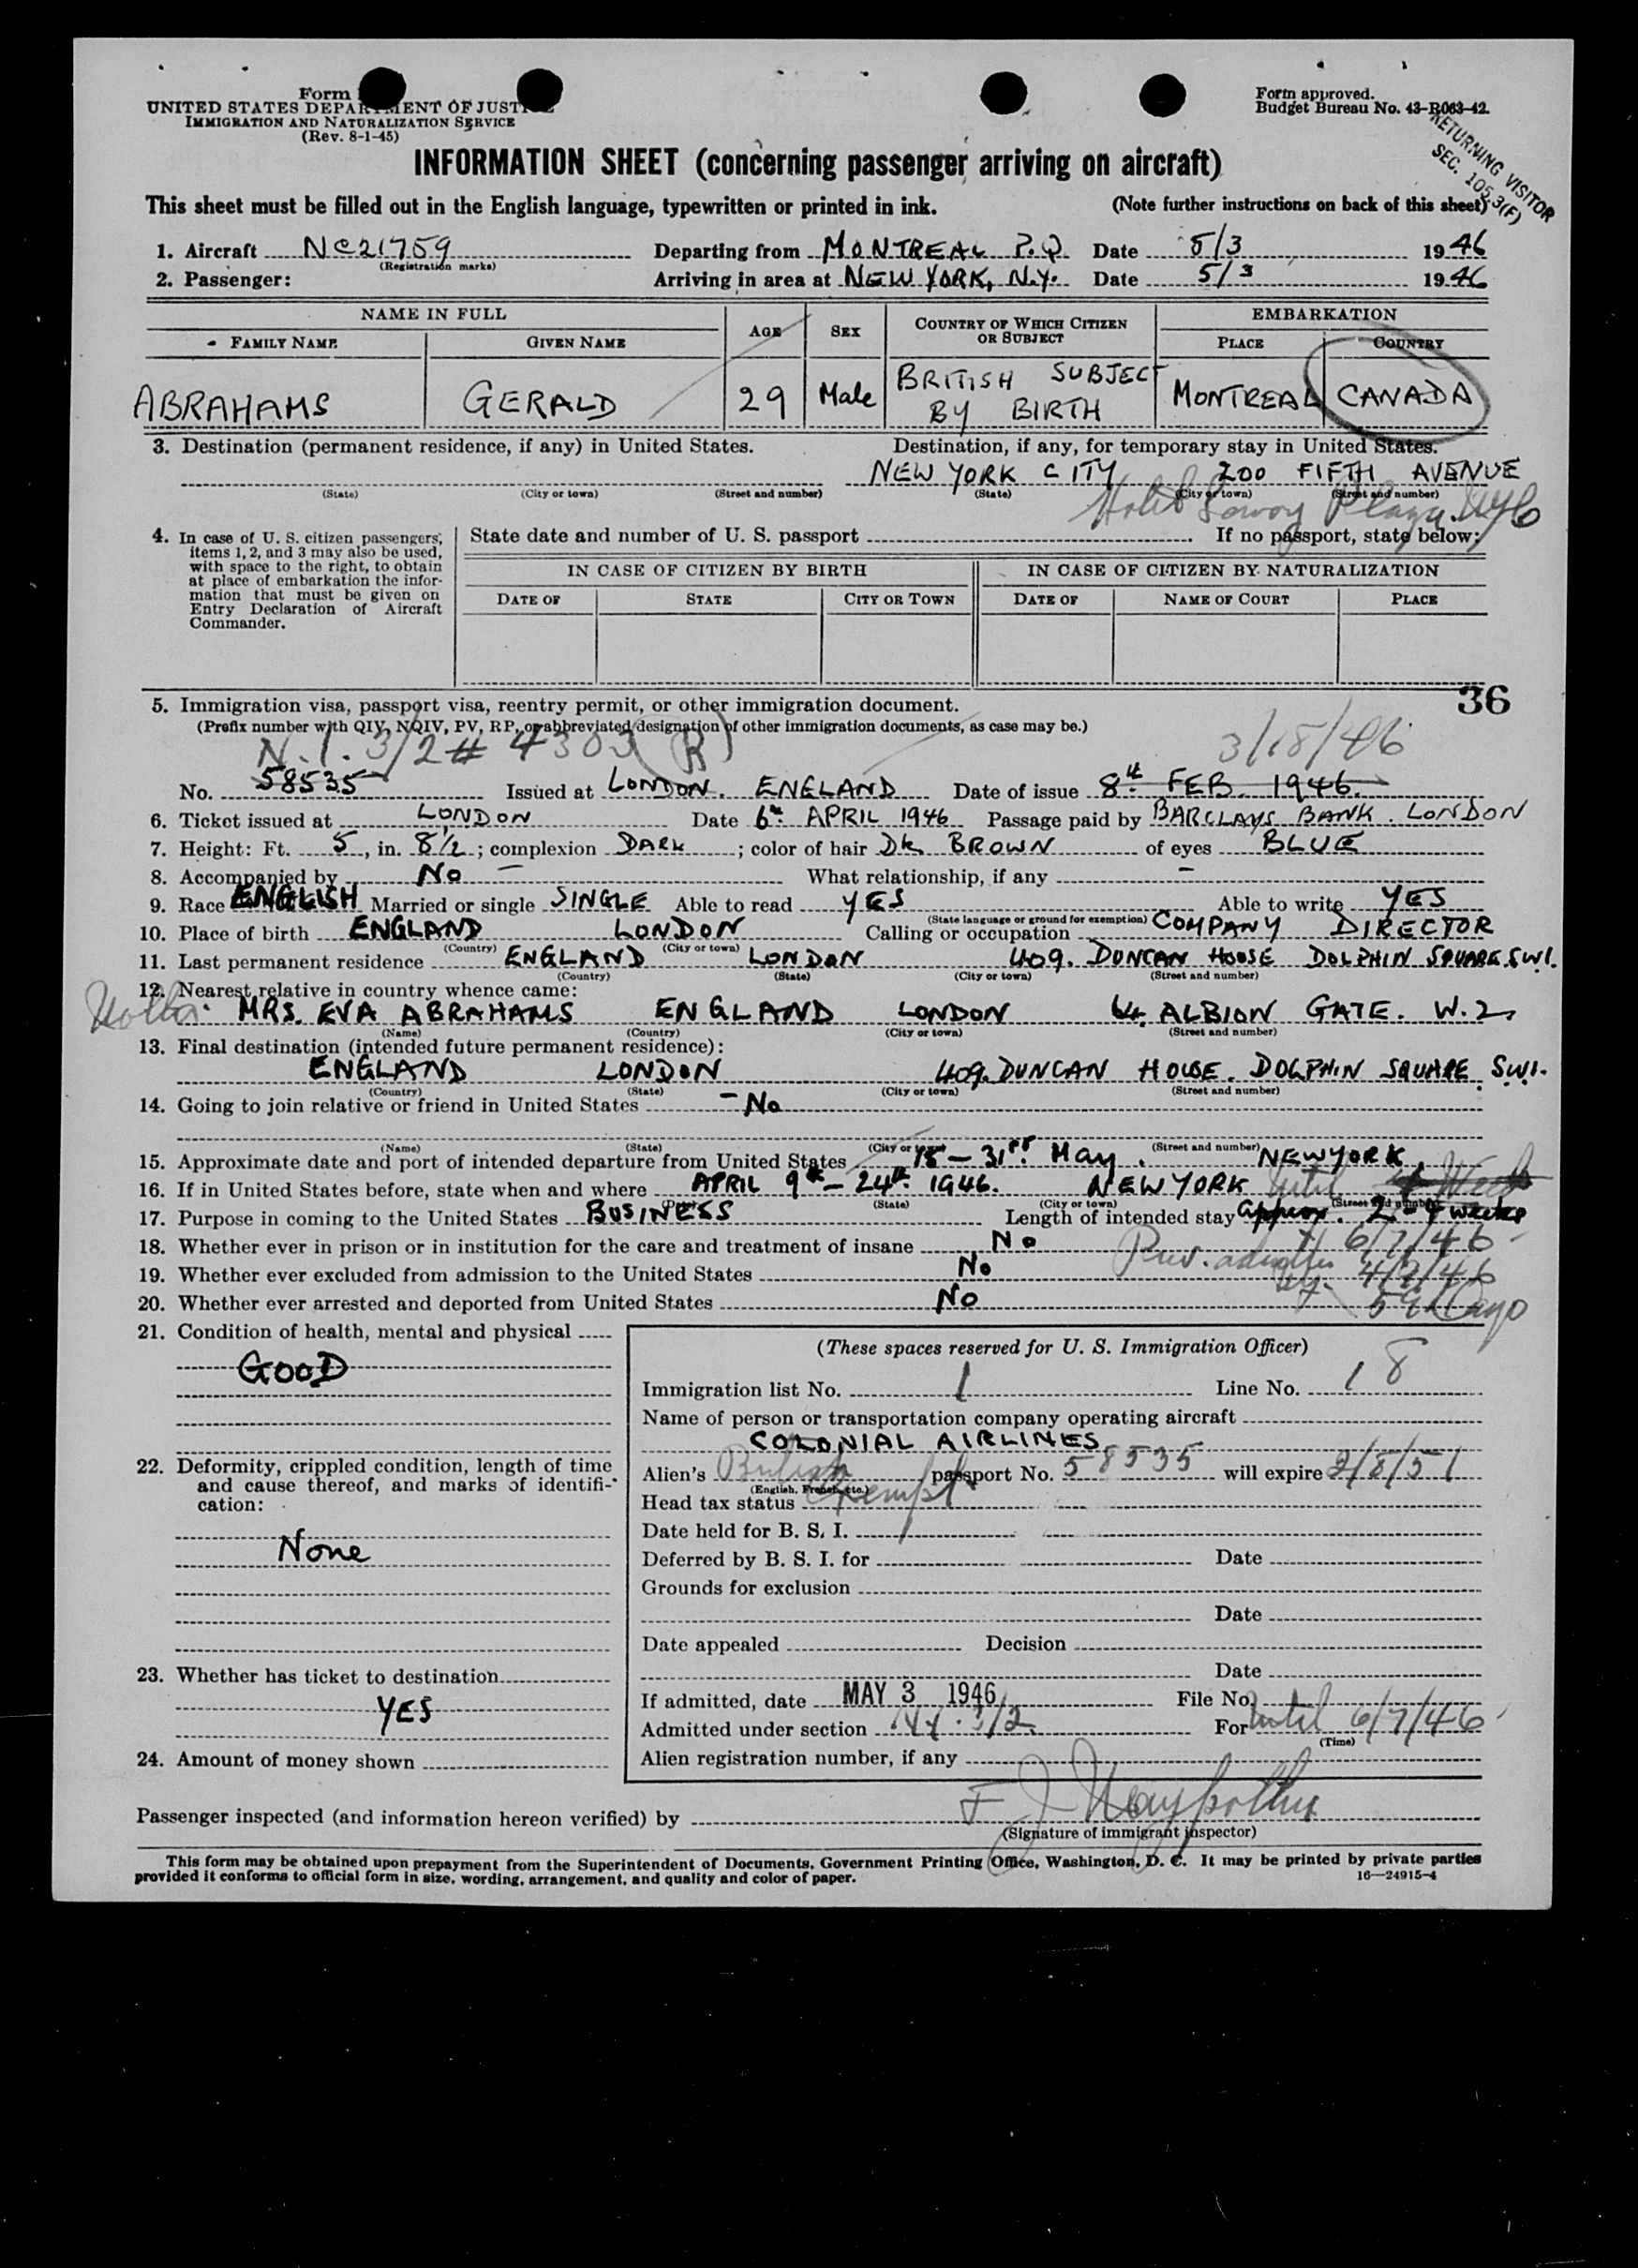 Form
UNITED STATES DEPARTMENT OF JUSTICE
IMMIGRATION AND NATURALIZATION SERVICE
(Rev. 8-1-45)
Form approved.
Budget Bureau No. 43-R063-42.
RETURNING VISITOR
SEC. 105.3(F)
INFORMATION SHEET (concerning passenger arriving on aircraft)
This sheet must be filled out in the English language, typewritten or printed in ink. (Note further instructions on back of this sheet)
1. Aircraft NC21759 Departing from MONTREAL P.Q. Date 5/3 1946
(Registration marks)
2. Passenger: Arriving in area at NEW YORK, N.Y. Date 5/3 1946
NAME IN FULL AGE SEX COUNTRY OF WHICH CITIZEN OR SUBJECT EMBARKATION
FAMILY NAME GIVEN NAME PLACE COUNTRY
ABRAHAMS GERALD 29 Male BRITISH SUBJECT BY BIRTH MONTREAL CANADA
3. Destination (permanent residence, if any) in United States. Destination, if any, for temporary stay in United States.
NEW YORK CITY 200 FIFTH AVENUE
(State) (City or town) (Street and number) (State) (City or town) (Street and number)
Hotel Savoy Plaza. NYC
4. In case of U. S. citizen passengers, items 1, 2, and 3 may also be used, with space to the right, to obtain at place of embarkation the information that must be given on Entry Declaration of Aircraft Commander.
State date and number of U. S. passport If no passport, state below:
IN CASE OF CITIZEN BY BIRTH IN CASE OF CITIZEN BY NATURALIZATION
DATE OF STATE CITY OR TOWN DATE OF NAME OF COURT PLACE
36
5. Immigration visa, passport visa, reentry permit, or other immigration document.
(Prefix number with QIV, NQIV, PV, RP, or abbreviated designation of other immigration documents, as case may be.)
N.I. 3/2 # 4303 (R) 3/18/46
No. 58535 Issued at LONDON. ENGLAND Date of issue 8th FEB. 1946.
6. Ticket issued at LONDON Date 6th APRIL 1946 Passage paid by BARCLAYS BANK. LONDON
7. Height: Ft. 5, in. 8 1/2; complexion DARK; color of hair DK BROWN of eyes BLUE
8. Accompanied by No – What relationship, if any –
9. Race ENGLISH Married or single SINGLE Able to read YES Able to write YES
(State language or ground for exemption)
10. Place of birth ENGLAND LONDON Calling or occupation COMPANY DIRECTOR
(Country) (City or town)
11. Last permanent residence ENGLAND LONDON 409. DUNCAN HOUSE DOLPHIN SQUARE. SW1.
(Country) (State) (City or town) (Street and number)
12. Nearest relative in country whence came:
Mother MRS. EVA ABRAHAMS ENGLAND LONDON 64. ALBION GATE. W.2.
(Name) (Country) (City or town) (Street and number)
13. Final destination (intended future permanent residence):
ENGLAND LONDON 409. DUNCAN HOUSE. DOLPHIN SQUARE. S.W.1.
(Country) (State) (City or town) (Street and number)
14. Going to join relative or friend in United States – No
(Name) (State) (City or town) (Street and number)
15. Approximate date and port of intended departure from United States 15 – 31st May. NEW YORK
16. If in United States before, state when and where APRIL 9th – 24th 1946. NEW YORK
(State) (City or town) (Street and number)
17. Purpose in coming to the United States BUSINESS Length of intended stay approx. 2-4 weeks
Until 6/7/46
18. Whether ever in prison or in institution for the care and treatment of insane No
19. Whether ever excluded from admission to the United States No
20. Whether ever arrested and deported from United States No
21. Condition of health, mental and physical
GOOD
22. Deformity, crippled condition, length of time and cause thereof, and marks of identification:
None
23. Whether has ticket to destination
YES
24. Amount of money shown
(These spaces reserved for U. S. Immigration Officer)
Immigration list No. 1 Line No. 18
Name of person or transportation company operating aircraft
COLONIAL AIRLINES
Alien's British passport No. 58535 will expire 2/8/51
(English, French, etc.)
Head tax status Exempt
Date held for B. S. I.
Deferred by B. S. I. for Date
Grounds for exclusion
Date
Date appealed Decision
Date
If admitted, date MAY 3 1946 File No.
Admitted under section 3/2 For Until 6/7/46
(Time)
Alien registration number, if any
Passenger inspected (and information hereon verified) by F J
(Signature of immigrant inspector)
This form may be obtained upon prepayment from the Superintendent of Documents, Government Printing Office, Washington, D. C. It may be printed by private parties
provided it conforms to official form in size, wording, arrangement, and quality and color of paper. 16—24915-4